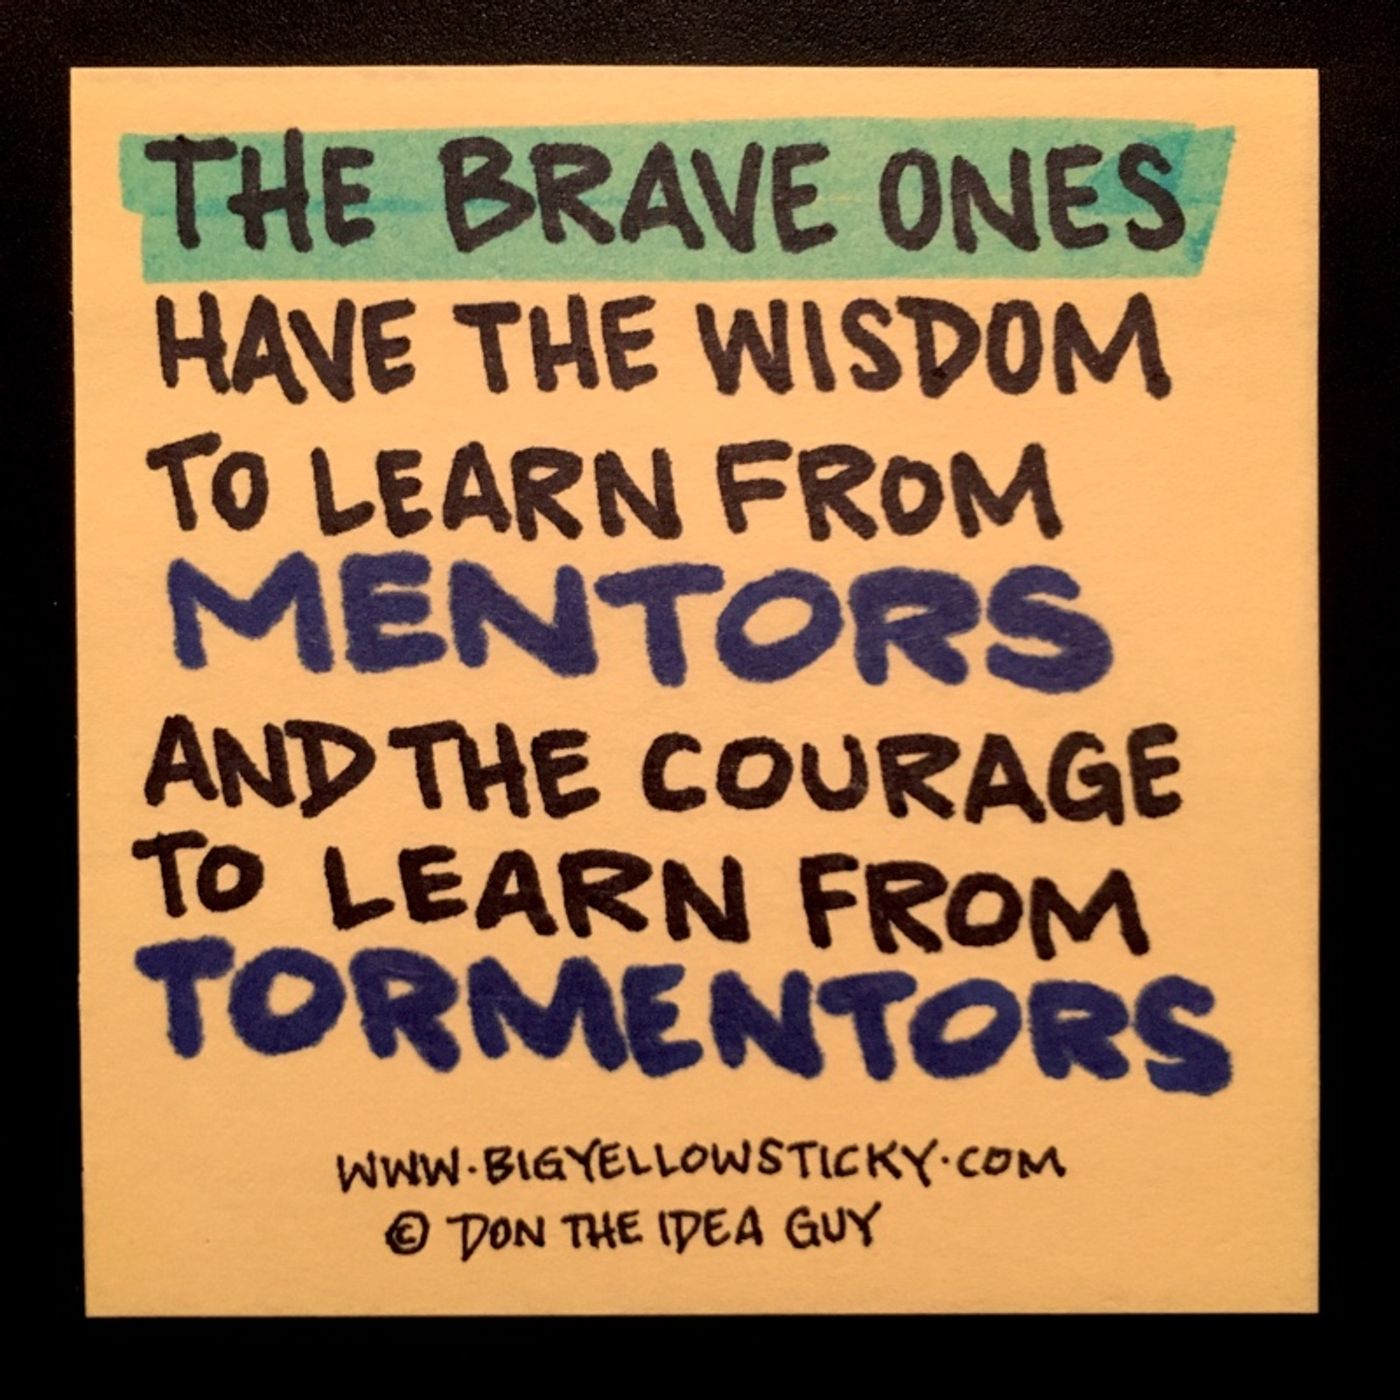 THE BRAVE ONES
HAVE THE WISDOM
TO LEARN FROM
MENTORS
AND THE COURAGE
TO LEARN FROM
TORMENTORS
WWW.BIGYELLOWSTICKY.COM
© DON THE IDEA GUY